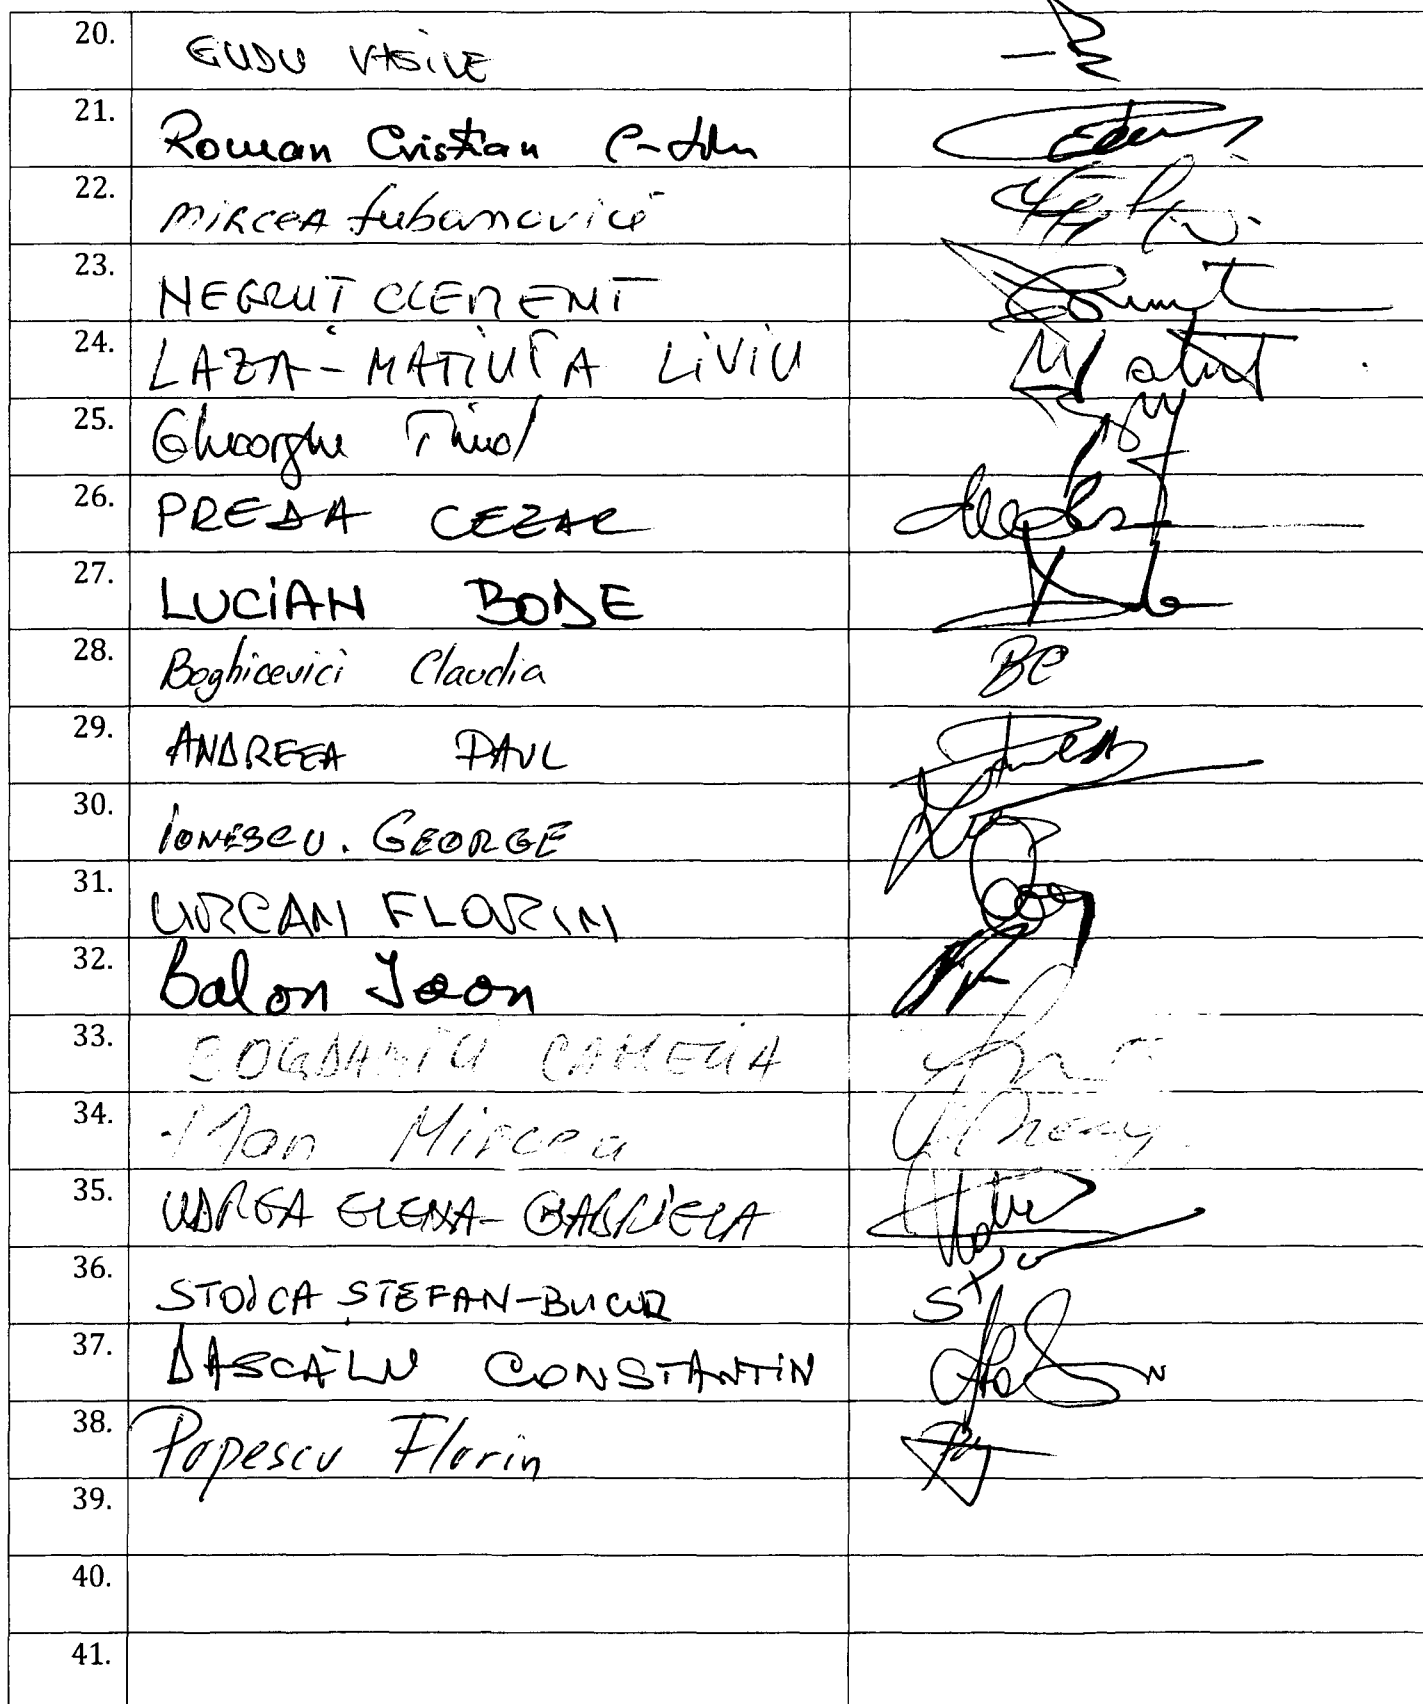 20. GUDU VASILE
21. Roman Cristian
22. MIRCEA Lubanovici
23. NEGRUȚ CLEMENT
24. LAZA-MATIUȚA LIVIU
25. Gheorghe Tinel
26. PREDA CEZAR
27. LUCIAN BODE
28. Boghicevici Claudia BC
29. ANDREEA PAUL
30. IONESCU. GEORGE
31. URCAN FLORIN
32. Balan Ioan
33. BOGDĂNICI CAMELIA
34. Man Mircea
35. UDREA ELENA-GABRIELA
36. STOICA ȘTEFAN-BUCUR
37. DASCĂLU CONSTANTIN
38. Popescu Florin
39.
40.
41.